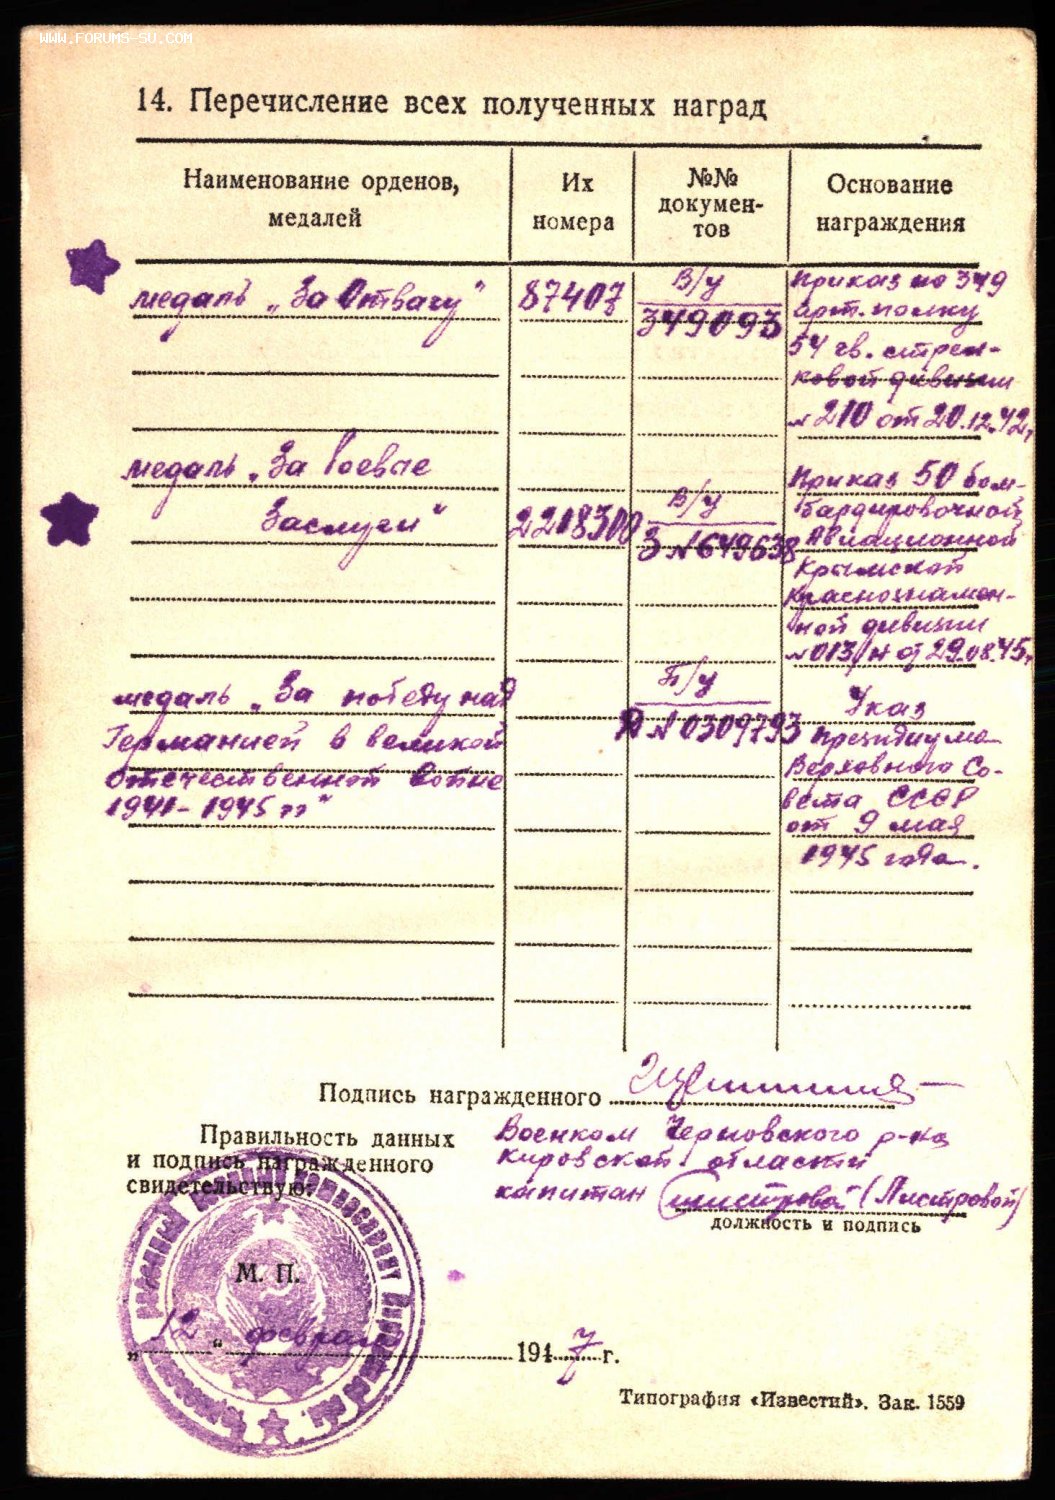 WWW.FORUMS-SU.COM
14. Перечисление всех полученных наград
Наименование орденов,
медалей
Их
номера
№№
докумен-
тов
Основание
награждения
медаль „За Отвагу"
87407
В/у
349093
Приказ по 349
арт. полку
54 гв. стрел-
ковой дивизии
№210 от 20.12.42г
медаль „За боевые
Заслуги"
2218300
В/у
З №649638
Приказ 50 бом-
бардировочной
Авиационной
Крымской
Краснознамен-
ной дивизии
№013/н от 29.08.45г
медаль „За победу над
Германией в великой
отечественной войне
1941-1945 гг"
Б/у
Я №0309793
Указ
Президиума
Верховного Со-
вета СССР
от 9 мая
1945 года.
Подпись награжденного
Правильность данных
и подпись награжденного
свидетельствую:
Военком Черновского р-на
Кировской области
капитан (Листровой)
должность и подпись
М. П.
„ 12 " февраля 1947 г.
Типография «Известий». Зак. 1559